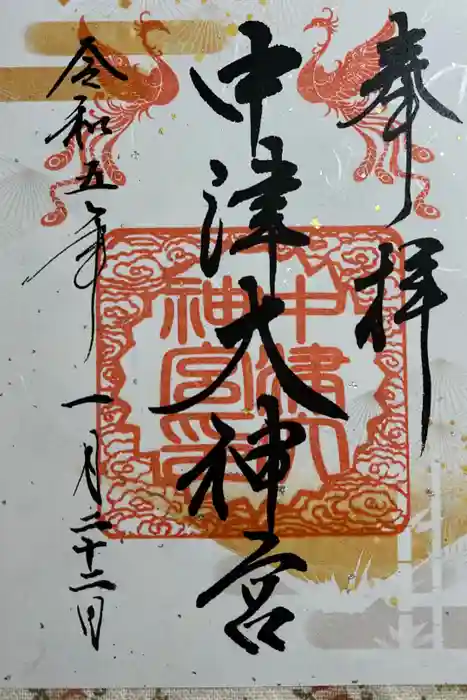 奉拝
中津大神宮
中津大
神宮印
令和五年一月二十二日